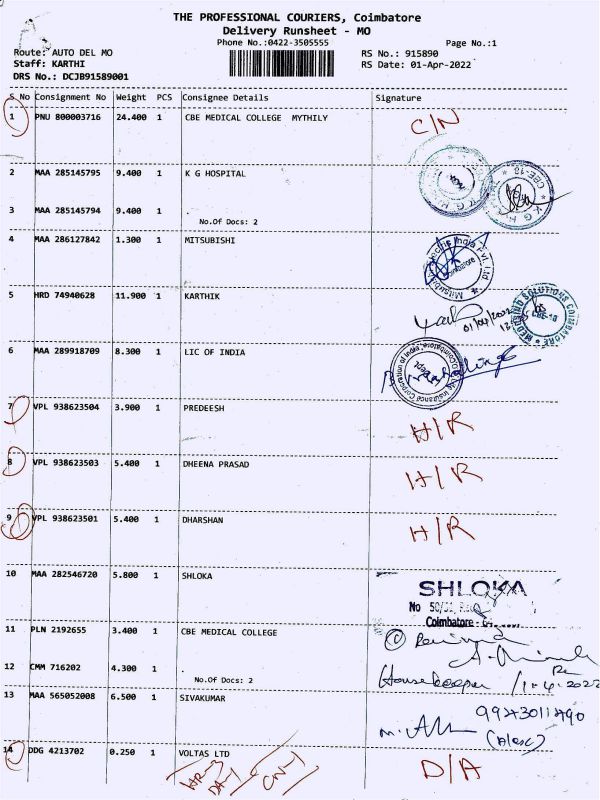 THE PROFESSIONAL COURIERS, Coimbatore
Delivery Runsheet - MO
Phone No.:0422-3505555
Page No.:1
Route: AUTO DEL MO
RS No.: 915890
Staff: KARTHI
RS Date: 01-Apr-2022
DRS No.: DCJB91589001
S No Consignment No Weight PCS Consignee Details Signature
1 PNU 800003716 24.400 1 CBE MEDICAL COLLEGE MYTHILY C/N
2 MAA 285145795 9.400 1 K G HOSPITAL
3 MAA 285145794 9.400 1
No.Of Docs: 2
4 MAA 286127842 1.300 1 MITSUBISHI
5 HRD 74940628 11.900 1 KARTHIK
01/04/2022
MEDISIND SOLUTIONS COIMBATORE
CBE-18
6 MAA 289918709 8.300 1 LIC OF INDIA
7 VPL 938623504 3.900 1 PREDEESH H/R
8 VPL 938623503 5.400 1 DHEENA PRASAD H/R
9 VPL 938623501 5.400 1 DHARSHAN H/R
10 MAA 282546720 5.800 1 SHLOKA
SHLOKA
No 50/
Coimbatore
11 PLN 2192655 3.400 1 CBE MEDICAL COLLEGE
12 CMM 716202 4.300 1
Housekeeper 1.4.2022
No.Of Docs: 2
13 MAA 565052008 6.500 1 SIVAKUMAR
(Alex)
14 DDG 4213702 0.250 1 VOLTAS LTD D/A
HR-3
DA-1
CN-1